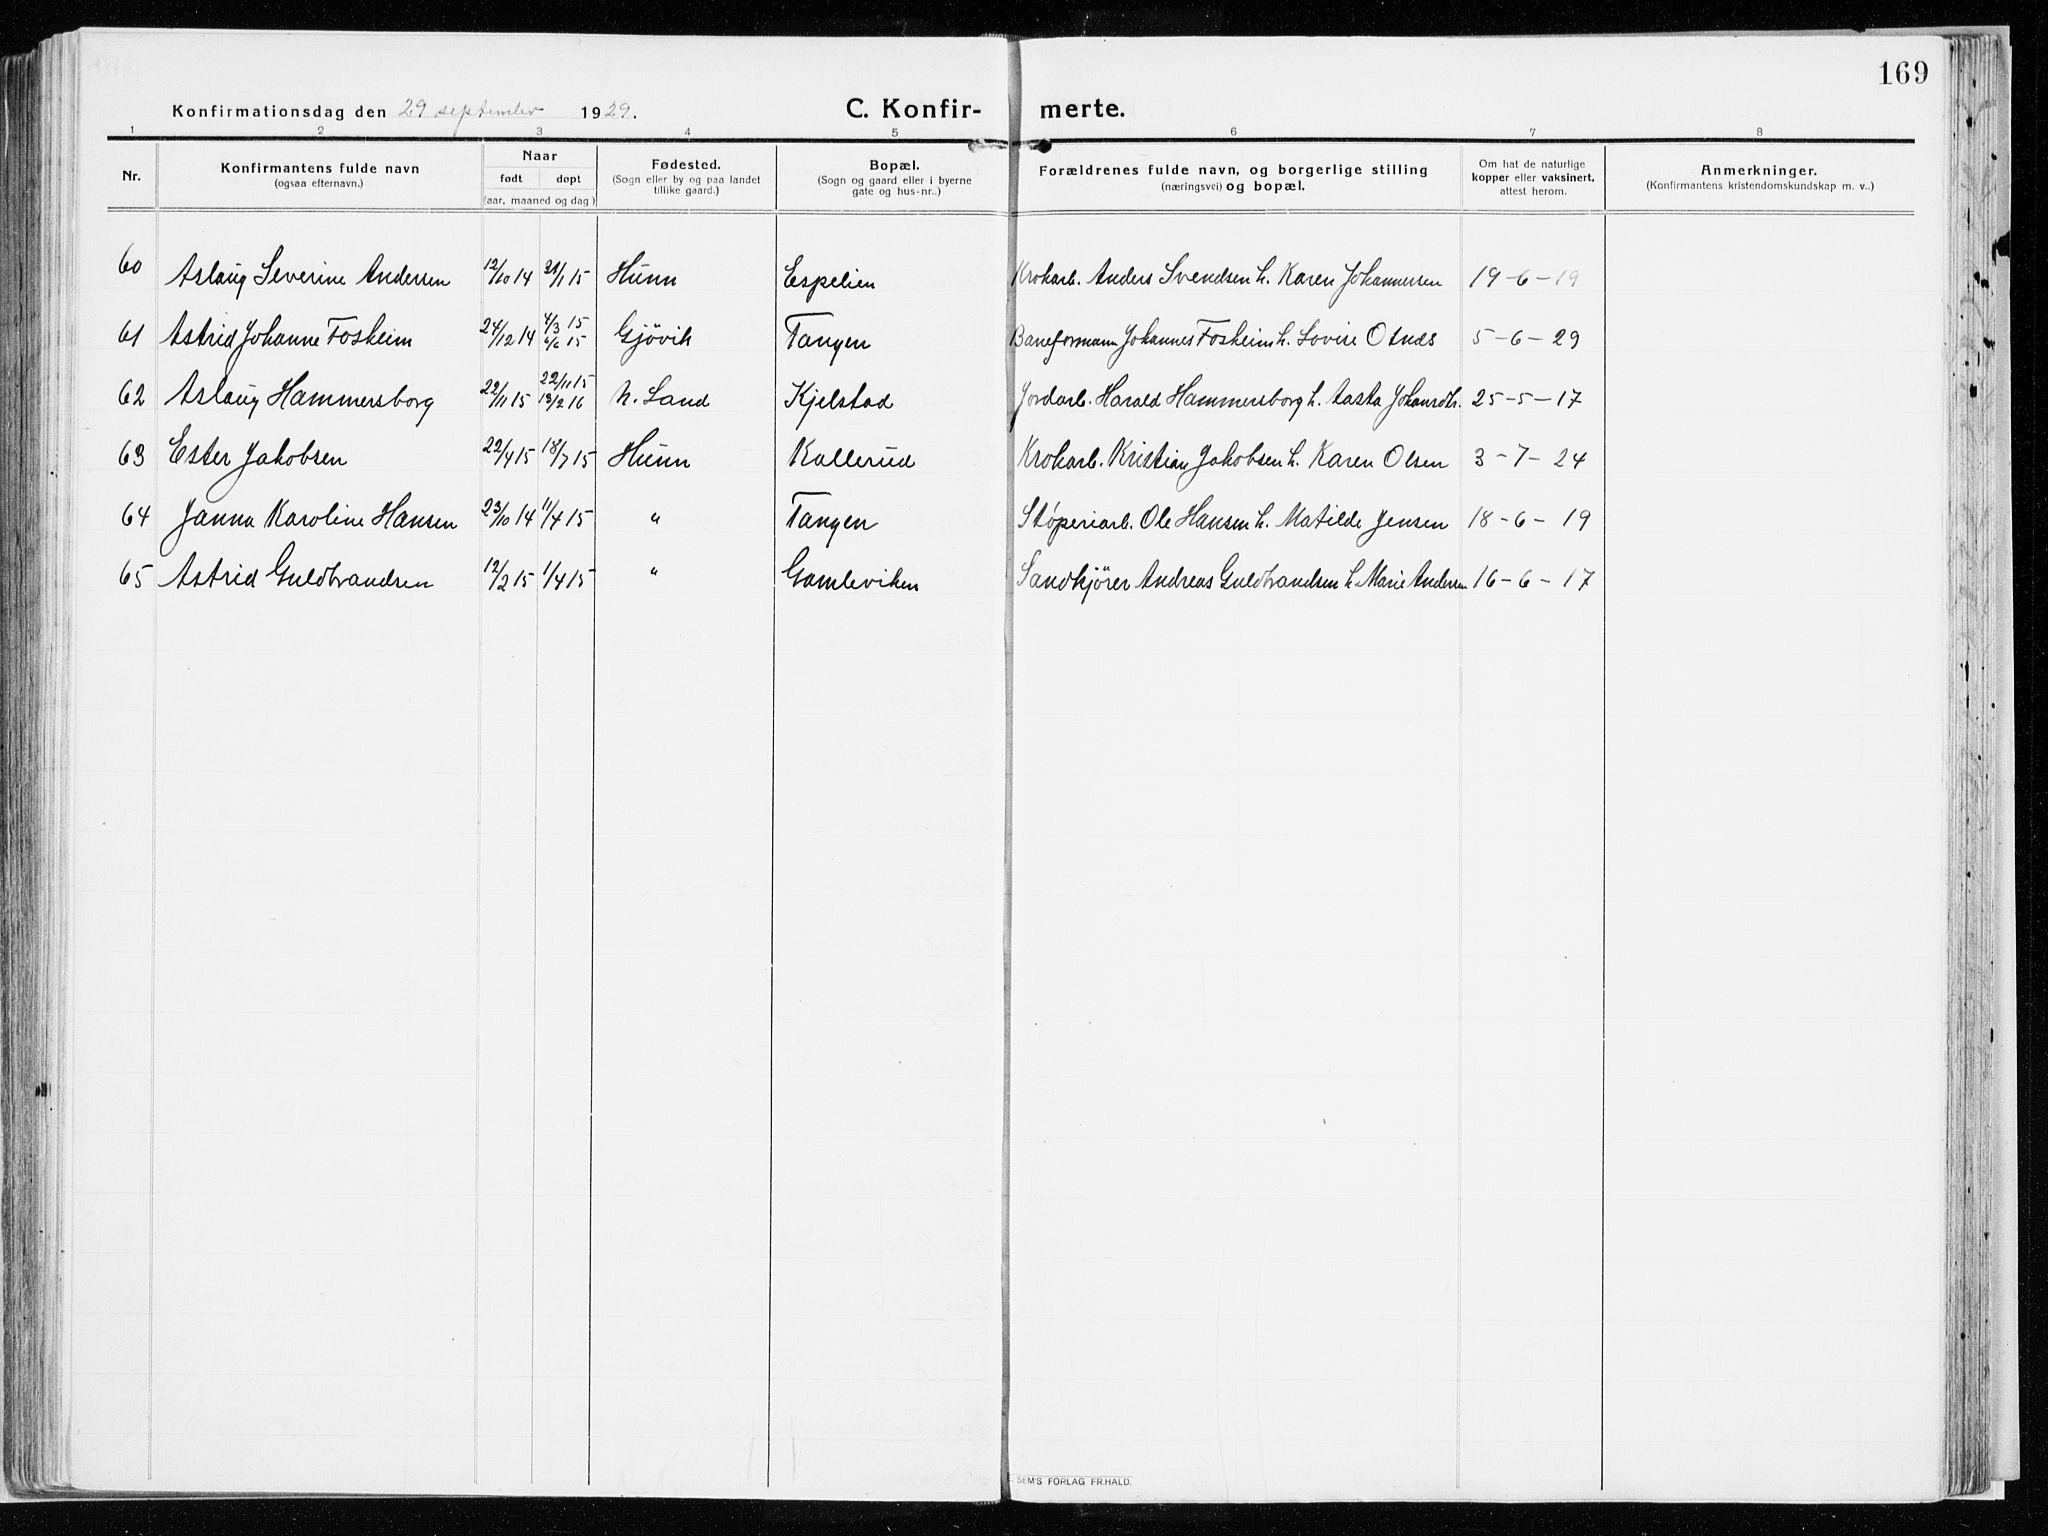 169
Konfirmationsdag den 29 september 1929. C. Konfir- merte.
1 2 3 4 5 6 7 8
Nr. Konfirmantens fulde navn (ogsaa efternavn.) Naar født døpt (aar, maaned og dag) Fødested. (Sogn eller by og paa landet tillike gaard.) Bopæl. (Sogn og gaard eller i byerne gate og hus-nr..) Forældrenes fulde navn, og borgerlige stilling (næringsvei) og bopæl. Om hat de naturlige kopper eller vaksinert, attest herom. Anmerkninger. (Konfirmantens kristendomskundskap m. v..)
60 Aslaug Severine Andersen 12/10 14 31/1 15 Hunn Espelien Krokarb. Anders Svendsen h. Karen Johannessen 19-6-19
61 Astrid Johanne Fosheim 24/12 14 4/3 15 6/6 15 Gjøvik Tangen Baneformann Johannes Fosheim h. Lovise Otnes 5-6-29
62 Aslaug Hammersborg 22/11 15 22/11 15 13/2 16 N. Land Kjelstad Jordarb. Harald Hammersborg h. Aasta Johansdtr. 25-5-17
63 Ester Jakobsen 22/4 15 18/7 15 Hunn Kallerud Krokarb. Kristian Jakobsen h. Karen Olsen 3-7-24
64 Janna Karoline Hansen 23/10 14 11/4 15 " Tangen Støperiarb. Ole Hansen h. Matilde Jensen 18-6-19
65 Astrid Guldbrandsen 12/2 15 1/4 15 " Gamleviken Sandkjører Andreas Guldbrandsen h. Marie Andersen 16-6-17
SEM'S FORLAG FR.HALD.